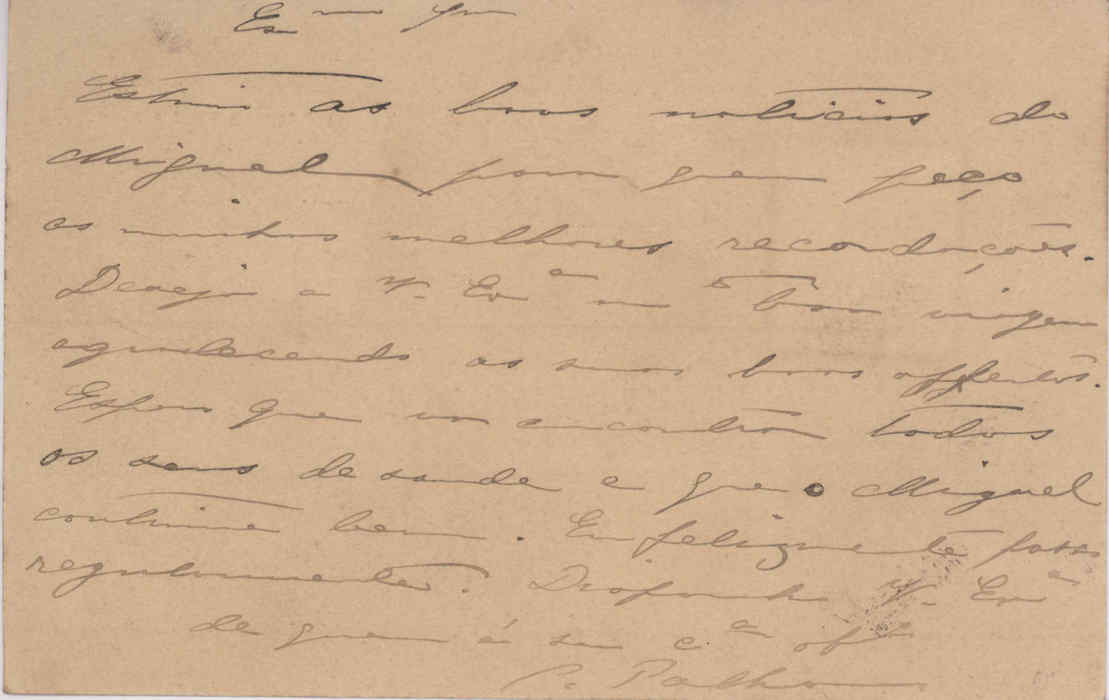 Ex.mo Snr
Estimo as boas noticias do
Miguel para quem peço
as minhas melhores recordações.
Desejo a V. Ex.a uma bôa viagem
agradecendo as suas boas offertas.
Espero que va encontrar todos
os seus de saude e que o Miguel
continue bem. Eu felizmente passo
regularmente. Disponha V. Ex.a
de quem é seu c.
P. Palha